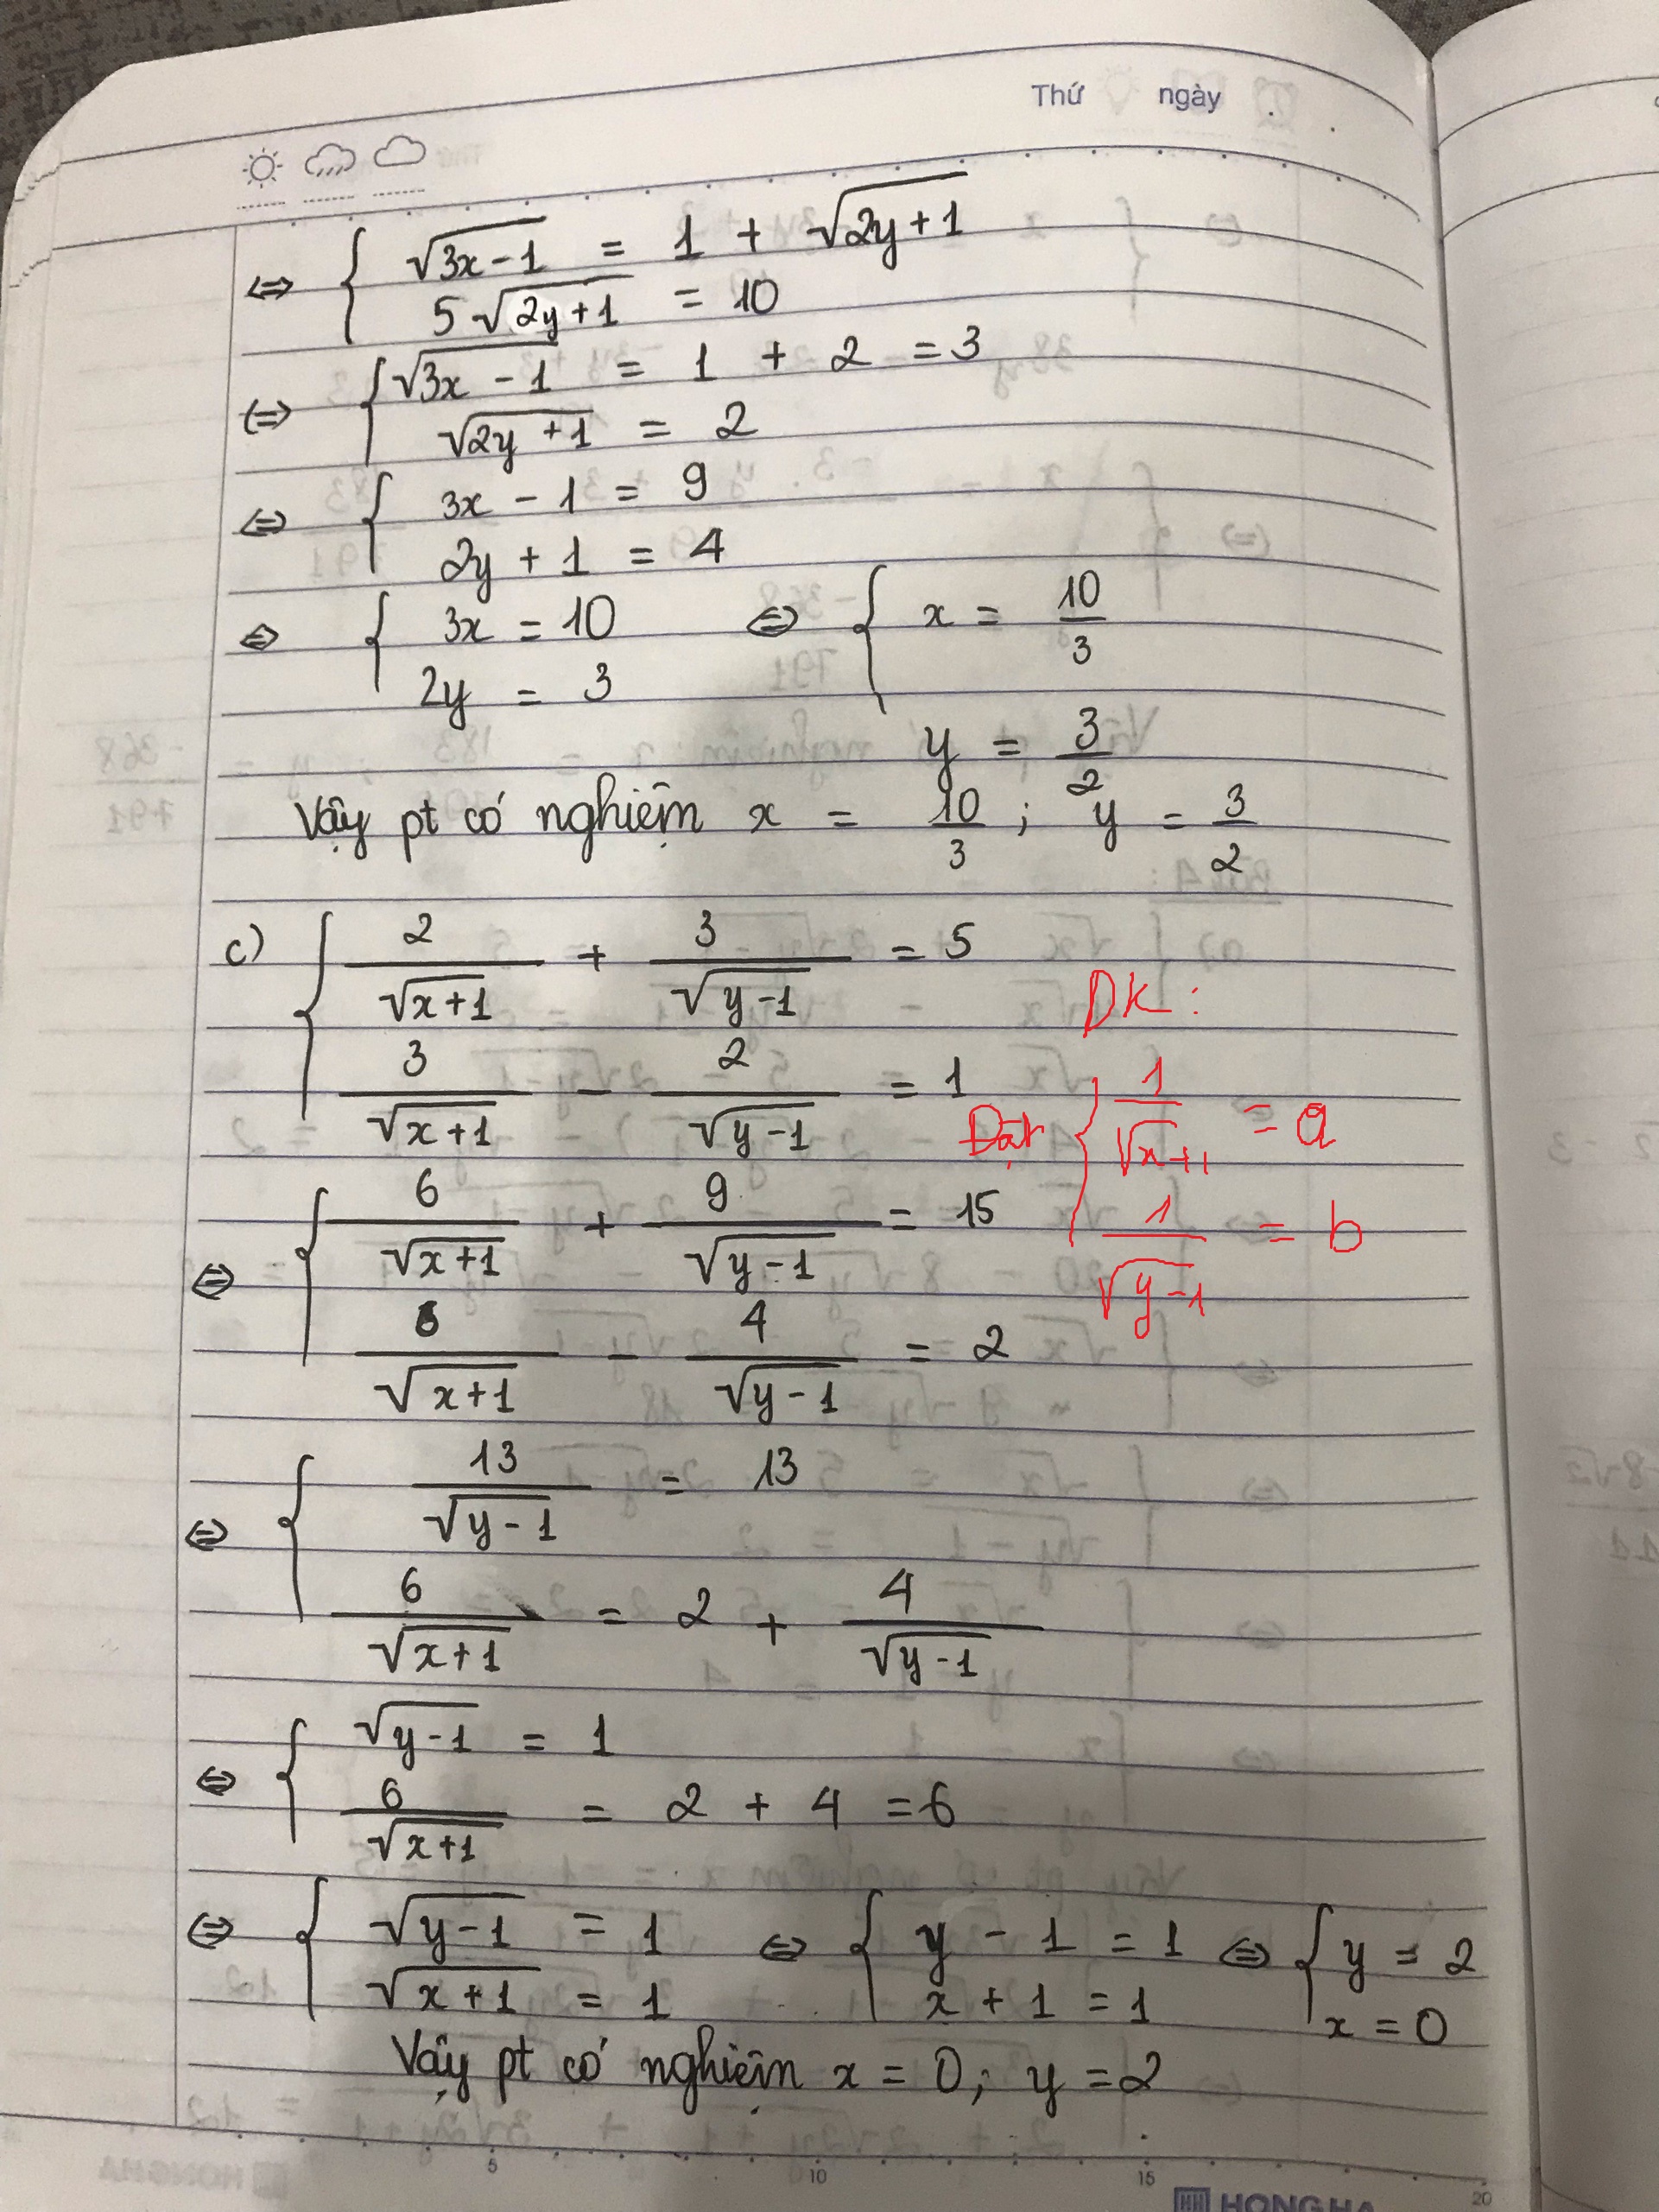 Thứ ngày
⇔ { √(3x-1) = 1 + √(2y+1)
5√(2y+1) = 10
⇔ { √(3x-1) = 1 + 2 = 3
√(2y+1) = 2
⇔ { 3x - 1 = 9
2y + 1 = 4
⇔ { 3x = 10 ⇔ { x = 10/3
2y = 3
y = 3/2
Vậy pt có nghiệm x = 10/3 ; y = 3/2
c) { 2/√(x+1) + 3/√(y-1) = 5
ĐK :
3/√(x+1) - 2/√(y-1) = 1
Đặt { 1/√(x+1) = a
1/√(y-1) = b
⇔ { 6/√(x+1) + 9/√(y-1) = 15
6/√(x+1) - 4/√(y-1) = 2
⇔ { 13/√(y-1) = 13
6/√(x+1) = 2 + 4/√(y-1)
⇔ { √(y-1) = 1
6/√(x+1) = 2 + 4 = 6
⇔ { √(y-1) = 1 ⇔ { y - 1 = 1 ⇔ { y = 2
√(x+1) = 1 x + 1 = 1 x = 0
Vậy pt có nghiệm x = 0; y = 2
5 10 15 20
HH HONG HA